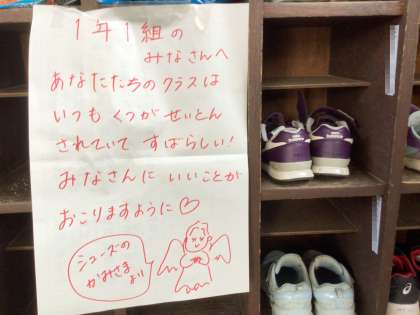 1年1組の
みなさんへ
あなたたちのクラスは
いつも くつが せいとん
されていて すばらしい!
みなさんに いいことが
おこりますように♡
シューズの
かみさまより